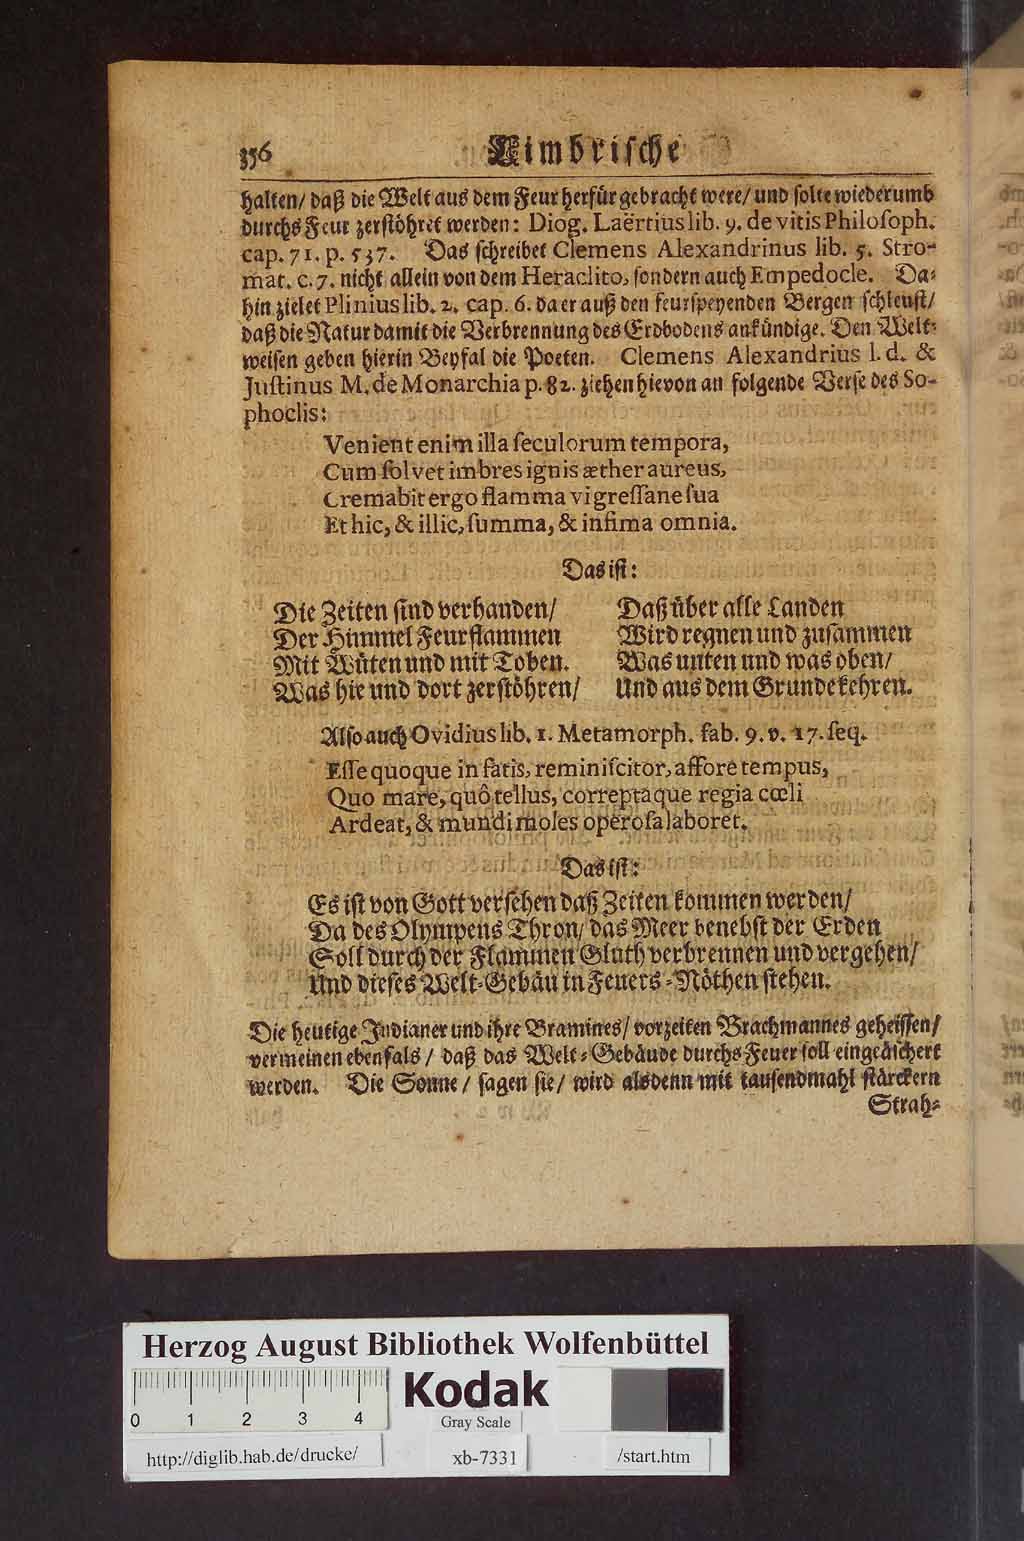 356 Cimbrische
halten/ daß die Welt aus dem Feur herfür gebracht were/ und solte wiederumb
durchs Feur zerstöhret werden: Diog. Laërtius lib. 9. de vitis Philosoph.
cap. 71. p. 537. Das schreibet Clemens Alexandrinus lib. 5. Stro-
mat. c. 7. nicht allein von dem Heraclito, sondern auch Empedocle. Da-
hin zielet Plinius lib. 2. cap. 6. da er auß den feurspeyenden Bergen schleust/
daß die Natur damit die Verbrennung des Erdbodens ankündige. Den Welt-
weisen geben hierin Beyfal die Poeten. Clemens Alexandrius l. d. &
Justinus M. de Monarchia p. 82. ziehen hievon an folgende Verse des So-
phoclis:
Venient enim illa seculorum tempora,
Cum solvet imbres ignis æther aureus,
Cremabit ergo flamma vi gressane sua
Et hic, & illic, summa, & infima omnia.
Das ist:
Die Zeiten sind verhanden/
Der Himmel Feurflammen
Mit Wüten und mit Toben.
Was hie und dort zerstöhren/
Daß über alle Landen
Wird regnen und zusammen
Was unten und was oben/
Und aus dem Grunde kehren.
Also auch Ovidius lib. 1. Metamorph. fab. 9. v. 17. seq.
Esse quoque in fatis, reminiscitor, affore tempus,
Quo mare, quô tellus, correptaque regia cœli
Ardeat, & mundi moles operosa laboret.
Das ist:
Es ist von Gott versehen daß Zeiten kommen werden/
Da des Olympens Thron/ das Meer benebst der Erden
Soll durch der Flammen Gluth verbrennen und vergehen/
Und dieses Welt-Gebäu in Feuers-Nöthen stehen.
Die heutige Indianer und ihre Bramines/ vorzeiten Brachmannes geheissen/
vermeinen ebenfals/ daß das Welt-Gebäude durchs Feuer soll eingeäschert
werden. Die Sonne/ sagen sie/ wird alsdenn mit tausendmahl stärckern
Strah-
Herzog August Bibliothek Wolfenbüttel
0 1 2 3 4
Kodak
Gray Scale
http://diglib.hab.de/drucke/
xb-7331
/start.htm